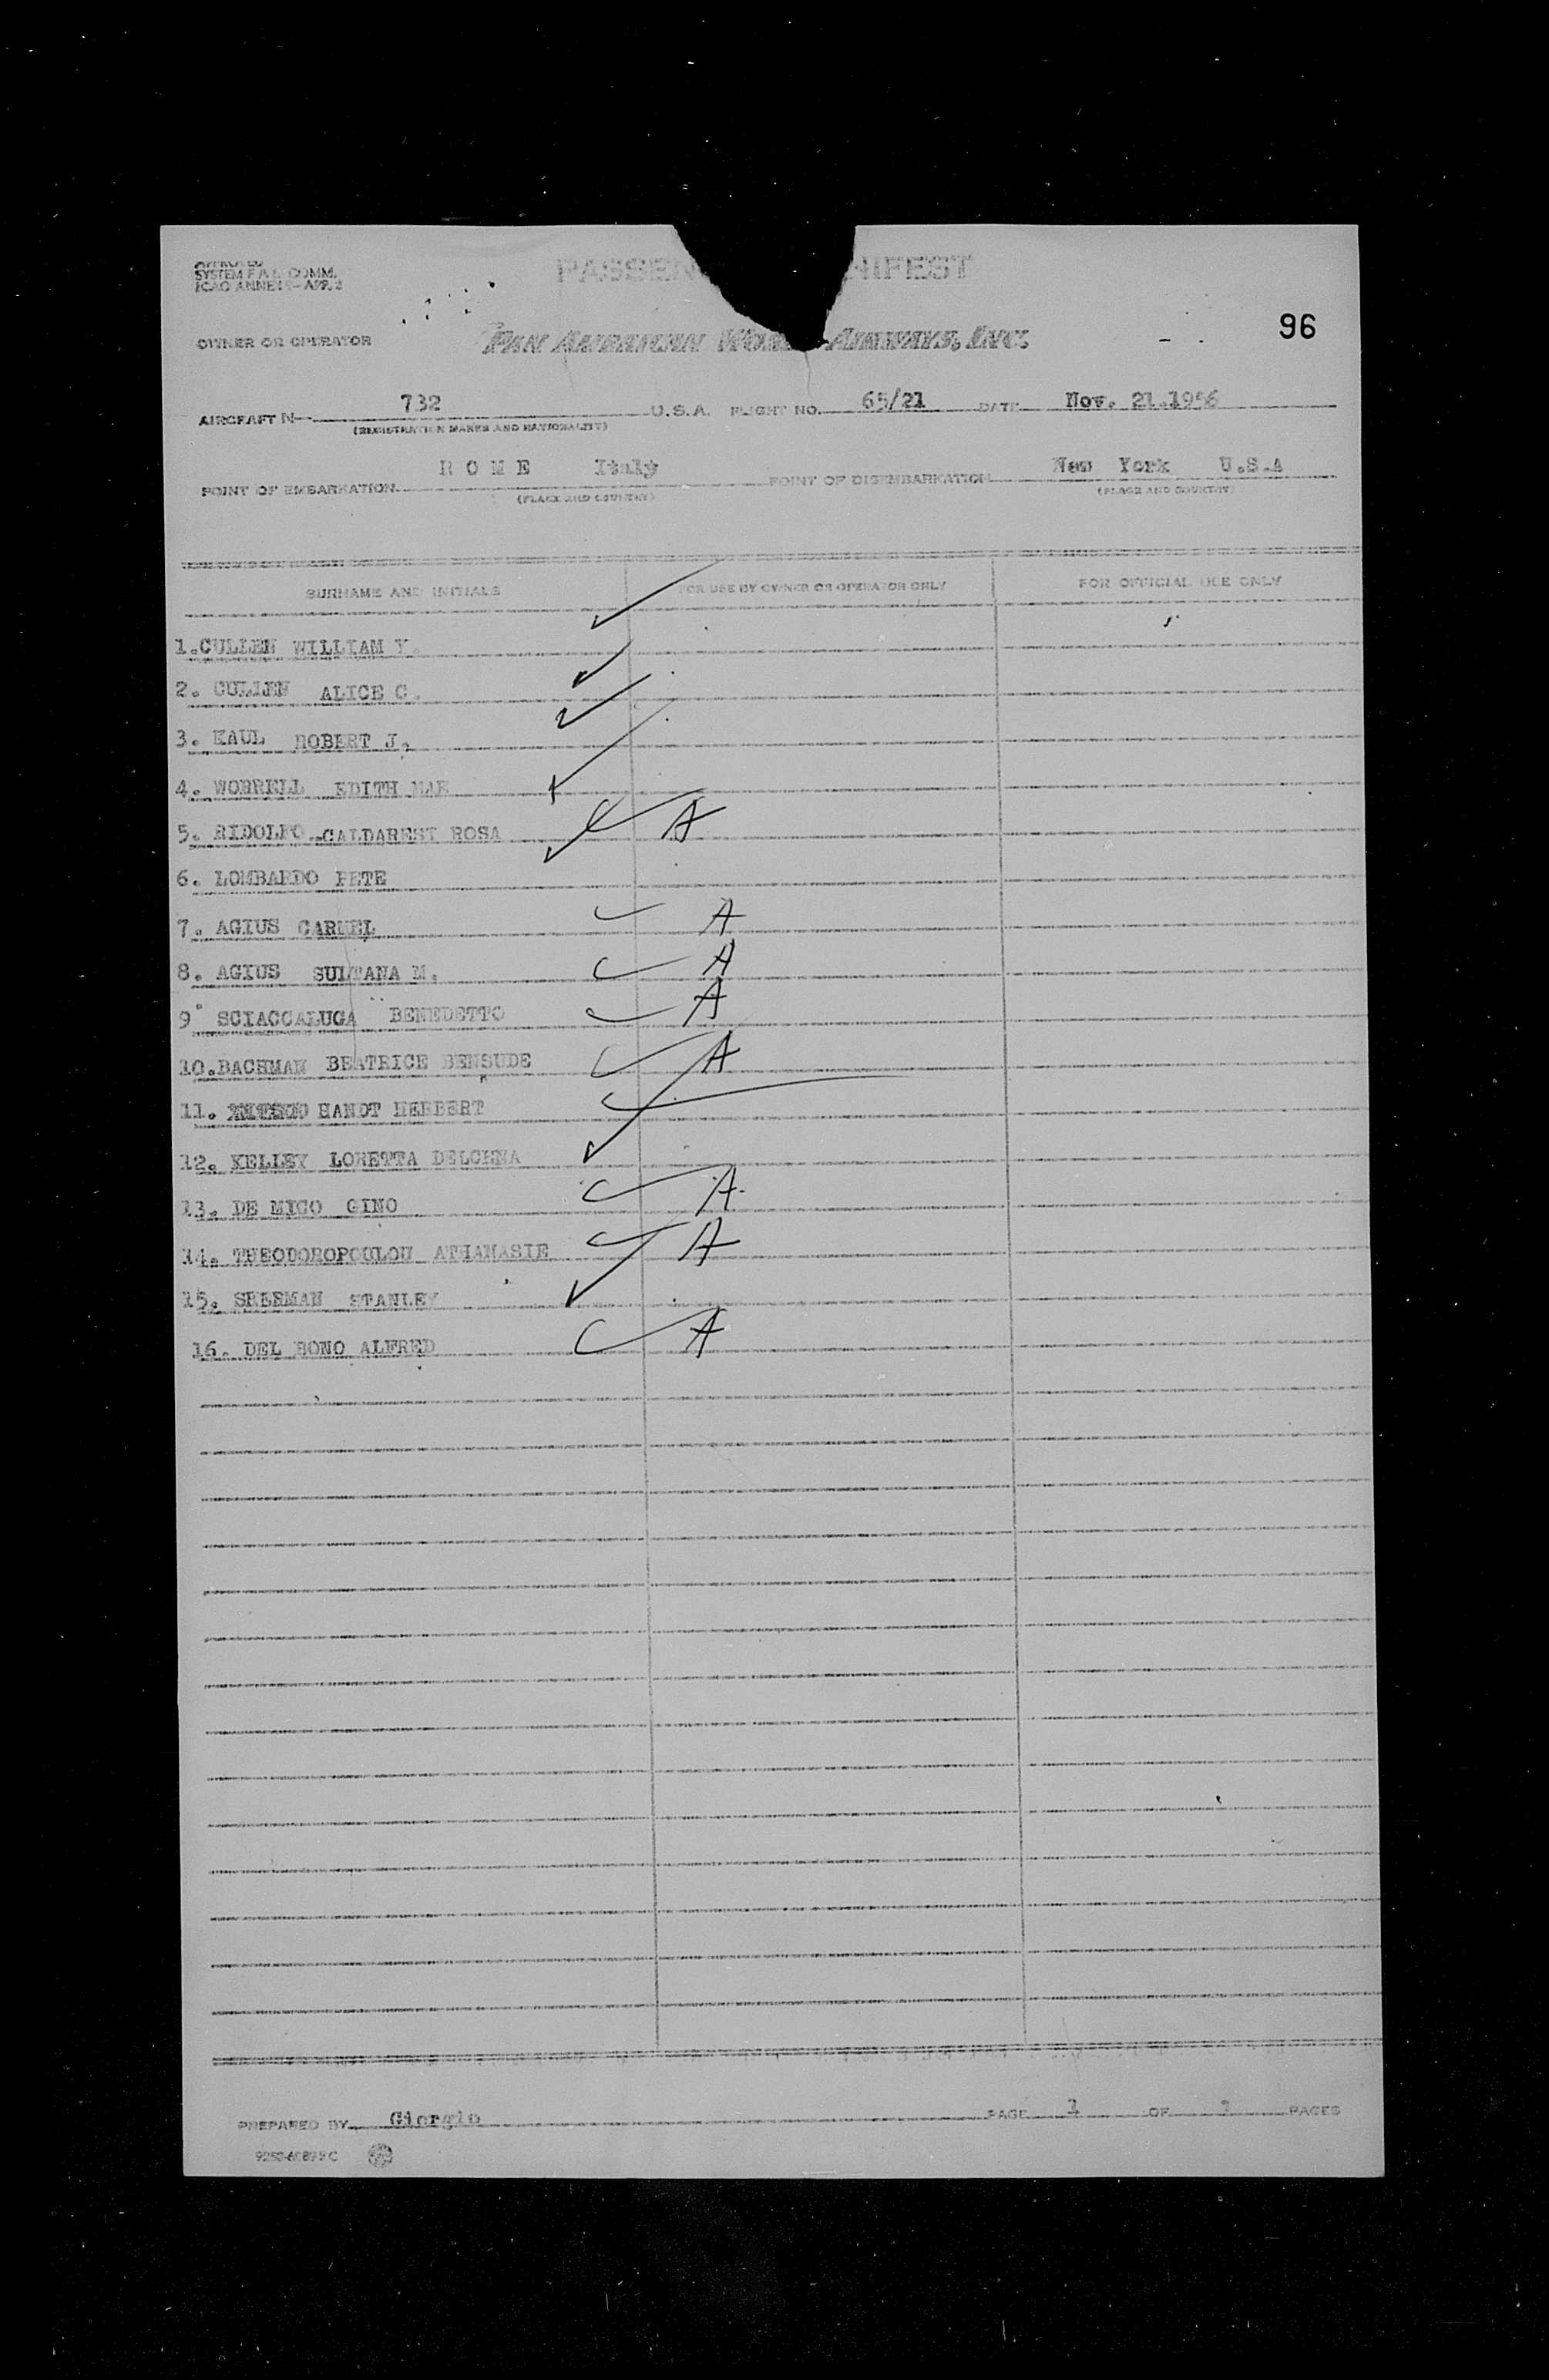 SYSTEM F.A.L. COMM.
ICAO ANNEX 9 - APP. 3
PASSEN NIFEST
96
OWNER OR OPERATOR PAN AMERICAN WORLD AIRWAYS, INC.
AIRCRAFT N 732 U.S.A. FLIGHT NO. 65/21 DATE Nov. 21.1956
(REGISTRATION MARKS AND NATIONALITY)
POINT OF EMBARKATION ROME Italy POINT OF DISEMBARKATION New York U.S.A
(PLACE AND COUNTRY) (PLACE AND COUNTRY)
SURNAME AND INITIALS FOR USE BY OWNER OR OPERATOR ONLY FOR OFFICIAL USE ONLY
1.CULLEN WILLIAM Y.
2. CULLEN ALICE C.
3. KAUL ROBERT J.
4. WORRELL EDITH MAE
5. RIDOLFO CALDAREST ROSA A
6. LOMBARDO PETE
7. AGIUS CARMEL A
8. AGIUS SULTANA M. A
9 SCIACCALUGA BENEDETTO A
10.BACHMAN BEATRICE BENSUDE A
11. HANDT HERBERT
12. KELLEY LORETTA
13. DE MICO GINO A
14. THEODOROPOULOU ATHANASIE A
15. STANLEY
16. DEL BONO ALFRED A
PREPARED BY Giorgio PAGE 1 OF 1 PAGES